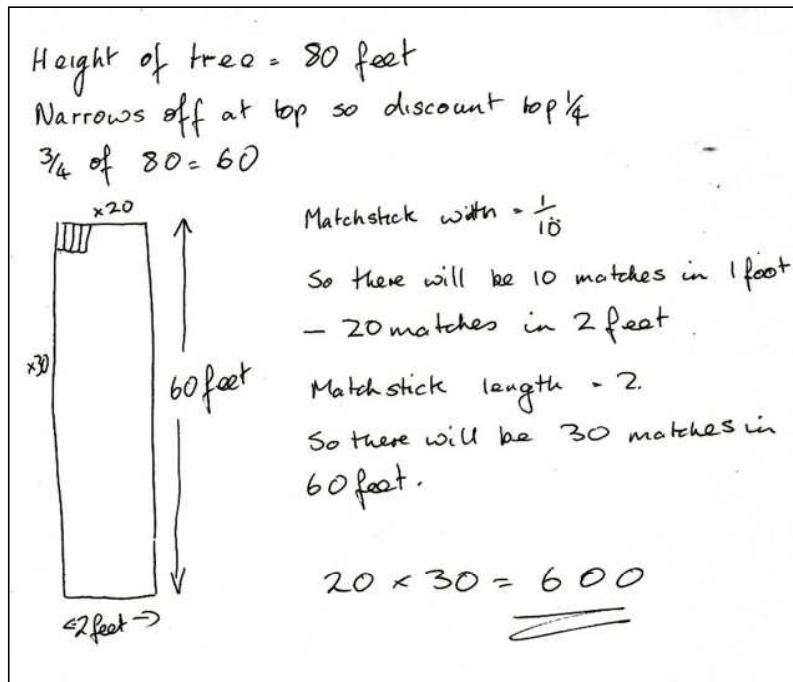 Height of tree = 80 feet
Narrows off at top so discount top 1/4
3/4 of 80 = 60
×20
×30
60 feet
<2 feet →
Matchstick width = 1/10
So there will be 10 matches in 1 foot
– 20 matches in 2 feet
Matchstick length = 2.
So there will be 30 matches in
60 feet.
20 × 30 = 600